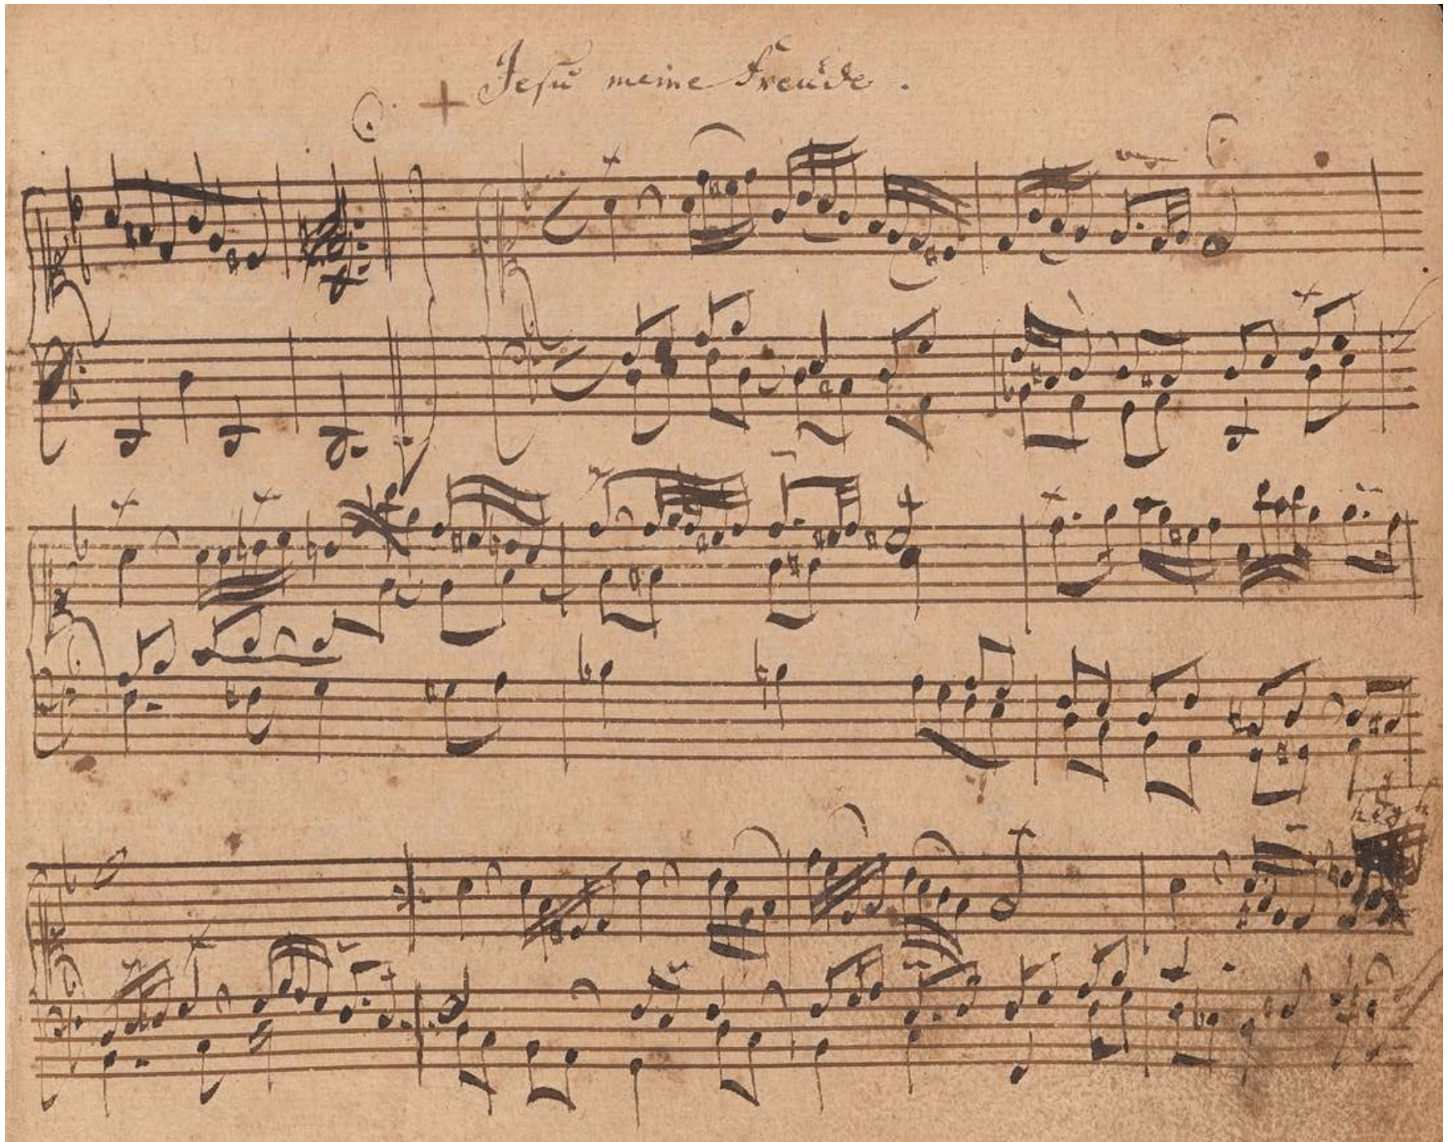 Jesu meine Freude.